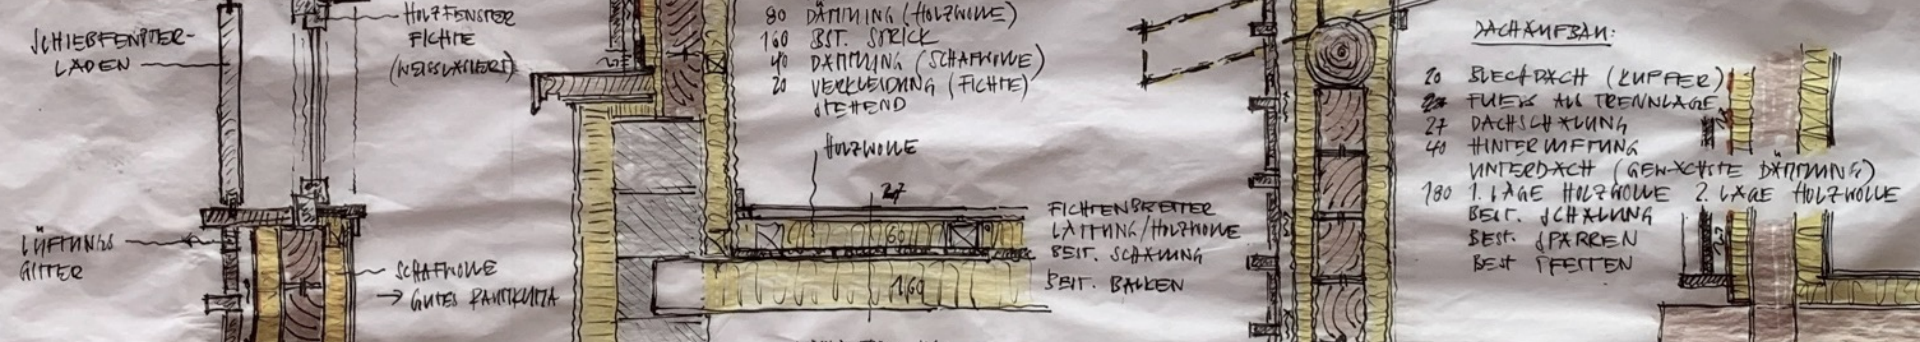 SCHIEBFENSTER-
LADEN
HOLZFENSTER
FICHTE
(WEISSLASIERT)
LÜFTUNGS
GITTER
SCHAFWOLLE
→ GUTES RAUMKLIMA
80 DÄMMUNG (HOLZWOLLE)
160 BST. STRICK
40 DÄMMUNG (SCHAFWOLLE)
20 VERKLEIDUNG (FICHTE)
STEHEND
HOLZWOLLE
27
60
160
FICHTENBRETTER
LATTUNG/HOLZWOLLE
BEST. SCHALUNG
BEST. BALKEN
DACHAUFBAU:
20 BLECHDACH (KUPFER)
FLIESS ALS TRENNLAGE
27 DACHSCHALUNG
40 HINTERLÜFTUNG
UNTERDACH (GEWACHSTE DÄMMUNG)
180 1. LAGE HOLZWOLLE 2. LAGE HOLZWOLLE
BEST. SCHALUNG
BEST. SPARREN
BEST PFETTEN